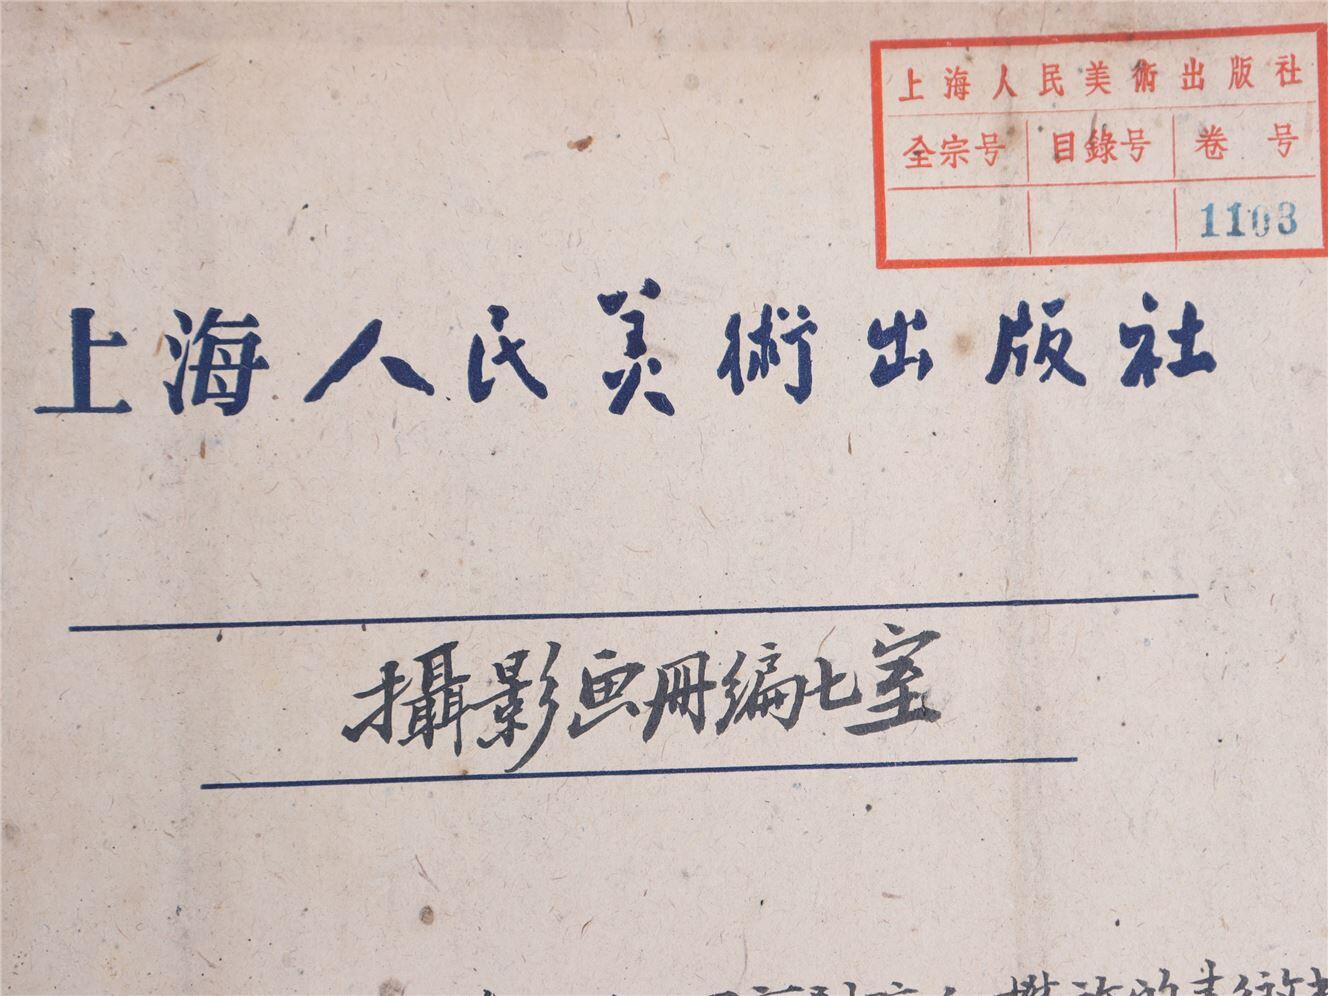 上海人民美術出版社
全宗号 目錄号 卷号
1103
上海人民美術出版社
攝影画册编七室